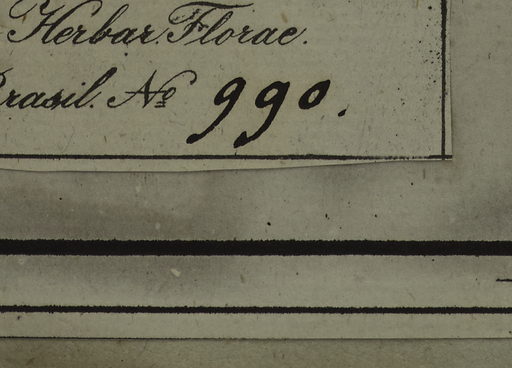 Herbar. Florae.
Brasil. No 990.